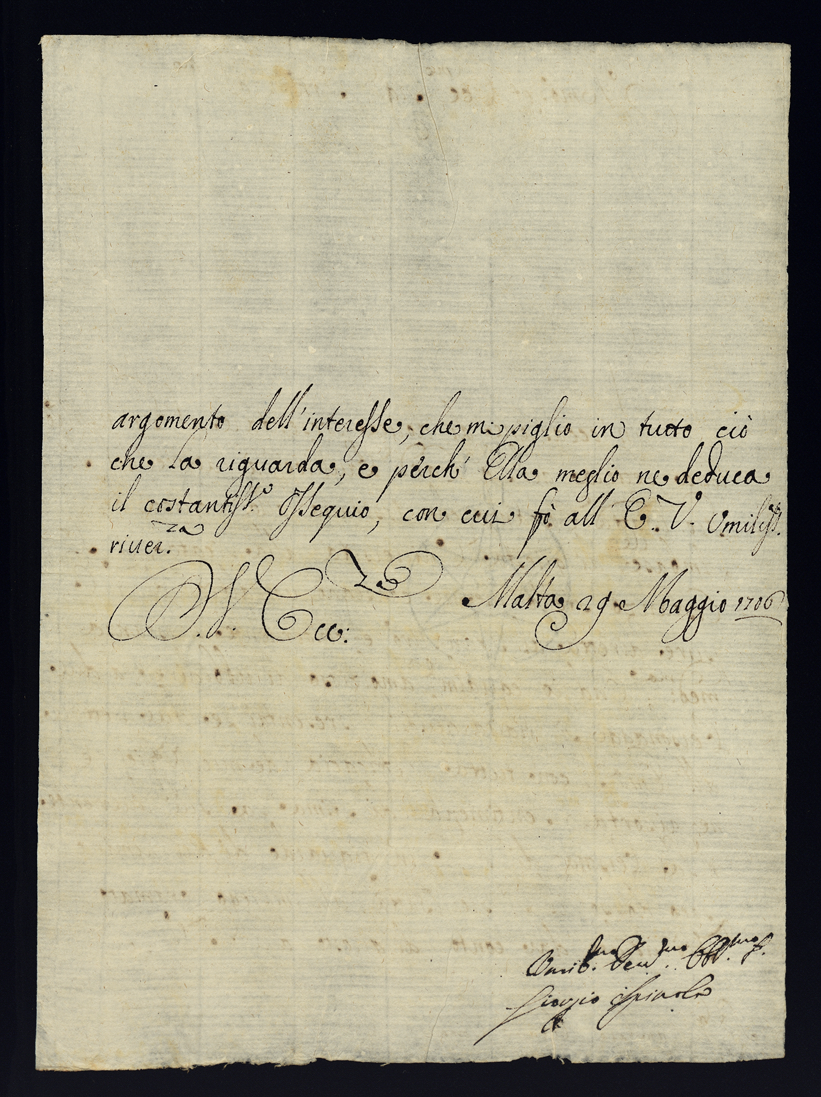 argomento dell'interesse, che mi piglio in tutto ciò
che la riguarda, e perch' Ella meglio ne deduca
il costantiss.º Ossequio, con cui fò all' E. V. Umiliss.
river.za
D. V. Ecc:za Malta 29 Maggio 1706
Serv.
Giorgio Spinola